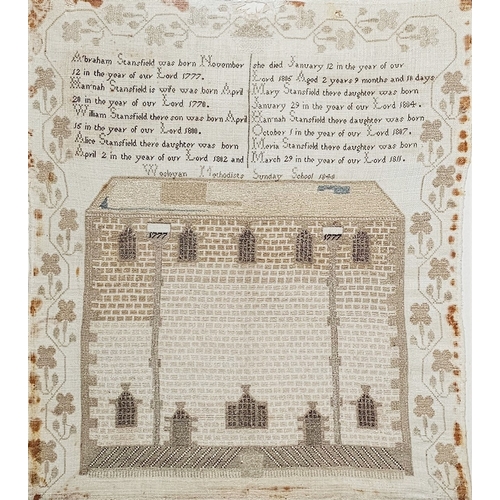 Abraham Stansfield was born November
12 in the year of our Lord 1777.
Hannah Stansfield is wife was born April
28 in the year of our Lord 1778.
William Stansfield there son was born April
16 in the year of our Lord 1800.
Alice Stansfield there daughter was born
April 2 in the year of our Lord 1802 and
she died January 12 in the year of our
Lord 1805 Aged 2 years 9 months and 10 days
Mary Stansfield there daughter was born
January 29 in the year of our Lord 1804.
Hannah Stansfield there daughter was born
October 1 in the year of our Lord 1807.
Maria Stansfield there daughter was born
March 29 in the year of our Lord 1811.
Wesleyan Methodists Sunday School
1777
1777